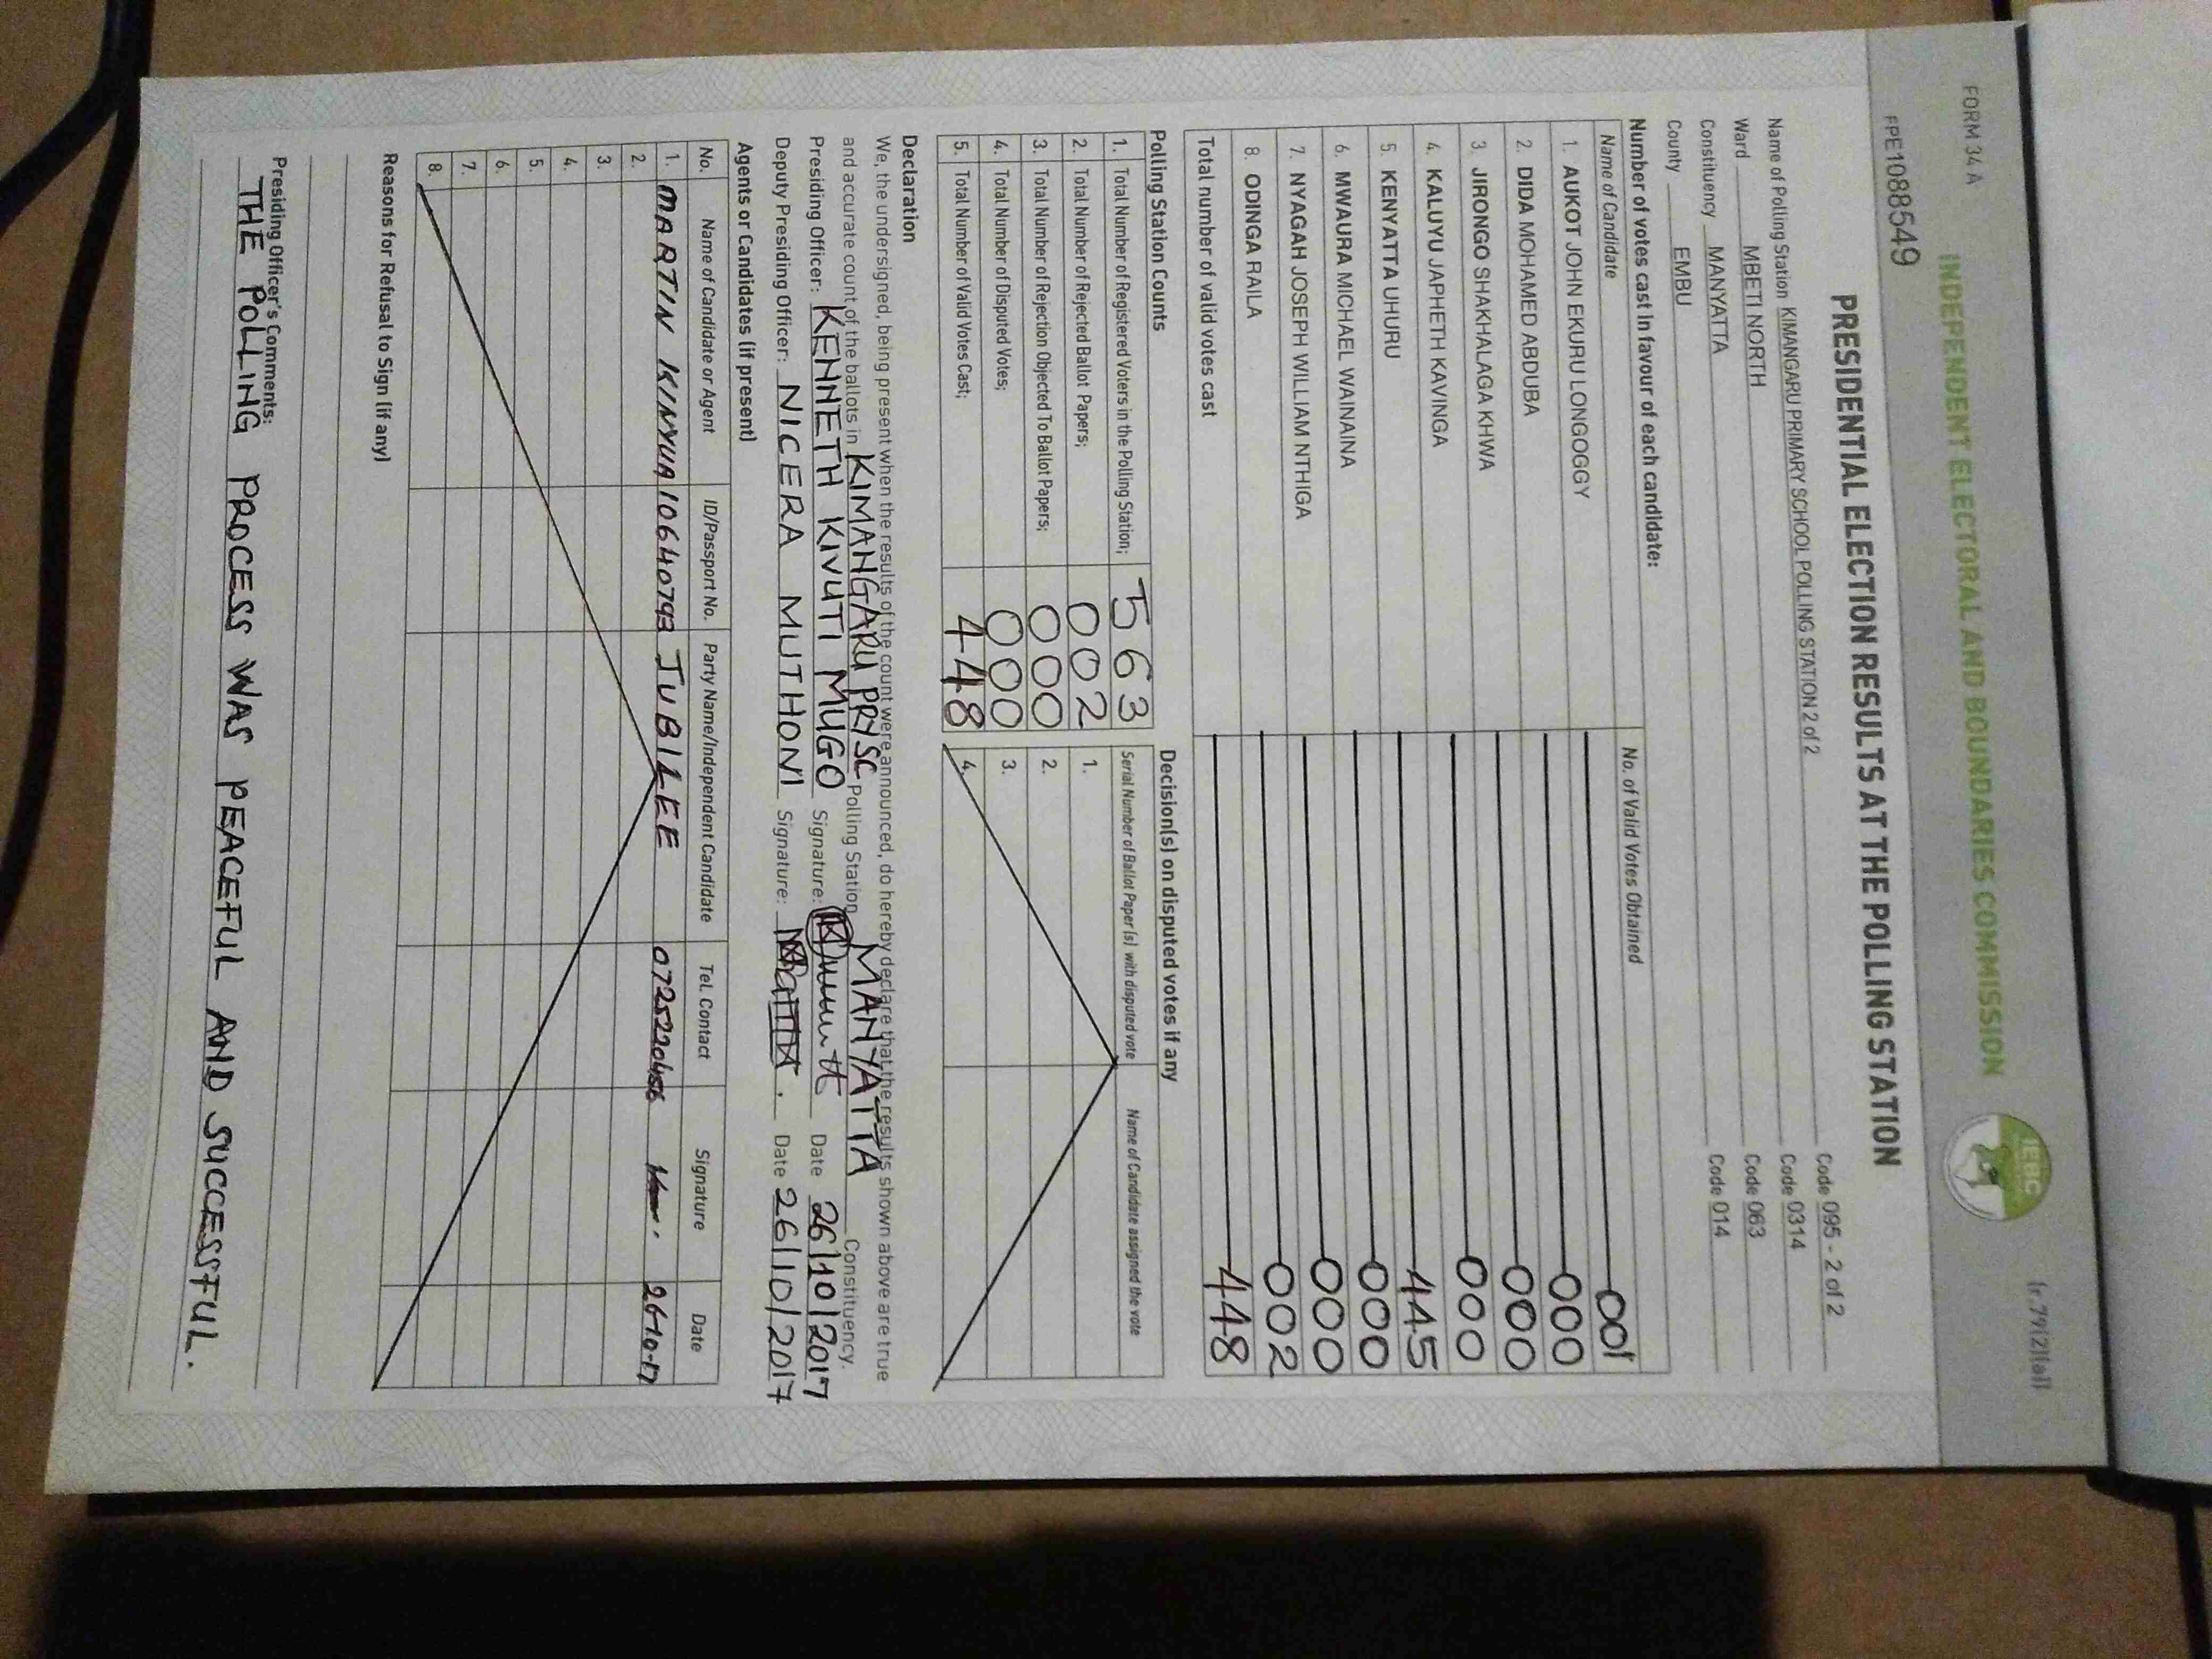 FORM 34 A
fr.79(2)(a)]
INDEPENDENT ELECTORAL AND BOUNDARIES COMMISSION
IEBC
FPE1088549
PRESIDENTIAL ELECTION RESULTS AT THE POLLING STATION
Name of Polling Station KIMANGARU PRIMARY SCHOOL POLLING STATION 2 of 2 Code 095 - 2 of 2
Ward MBETI NORTH Code 0314
Constituency MANYATTA Code 063
County EMBU Code 014
Number of votes cast in favour of each candidate:
Name of Candidate No. of Valid Votes Obtained
1. AUKOT JOHN EKURU LONGOGGY 001
2. DIDA MOHAMED ABDUBA 000
3. JIRONGO SHAKHALAGA KHWA 000
4. KALUYU JAPHETH KAVINGA 000
5. KENYATTA UHURU 445
6. MWAURA MICHAEL WAINAINA 000
7. NYAGAH JOSEPH WILLIAM NTHIGA 000
8. ODINGA RAILA 002
Total number of valid votes cast 448
Polling Station Counts
1. Total Number of Registered Voters in the Polling Station; 563
2. Total Number of Rejected Ballot Papers; 002
3. Total Number of Rejection Objected To Ballot Papers; 000
4. Total Number of Disputed Votes; 000
5. Total Number of Valid Votes Cast; 448
Decision(s) on disputed votes if any
Serial Number of Ballot Paper (s) with disputed vote Name of Candidate assigned the vote
1.
2.
3.
4.
Declaration
We, the undersigned, being present when the results of the count were announced, do hereby declare that the results shown above are true
and accurate count of the ballots in KIMANGARU PRY SC Polling Station MANYATTA Constituency.
Presiding Officer: KENNETH KIVUTI MUGO Signature: Date 26/10/2017
Deputy Presiding Officer: NICERA MUTHONI Signature: Date 26/10/2017
Agents or Candidates (if present)
No. Name of Candidate or Agent ID/Passport No. Party Name/Independent Candidate Tel. Contact Signature Date
1. MARTIN KINYUA 10640793 JUBILEE 26-10-17
2.
3.
4.
5.
6.
7.
8.
Reasons for Refusal to Sign (if any)
Presiding Officer's Comments:
THE POLLING PROCESS WAS PEACEFUL AND SUCCESSFUL.